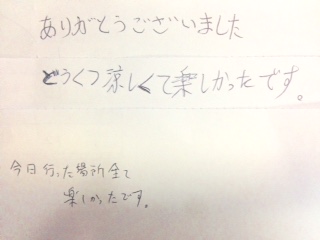 ありがとうございました
どうくつ涼しくて楽しかったです。
今日行った場所全て
楽しかったです。